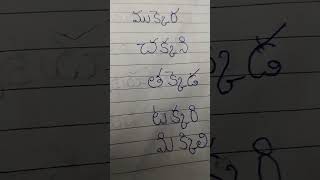 ముక్కెర
చక్కని
తక్కెడ
టక్కరి
మిక్కిలి